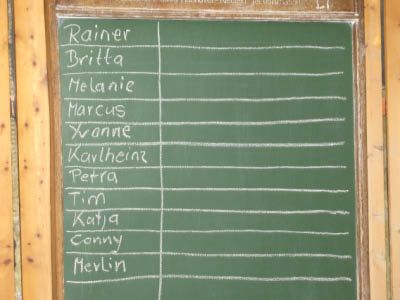 Rainer
Britta
Melanie
Marcus
Yvonne
Karlheinz
Petra
Tim
Katja
Conny
Merlin